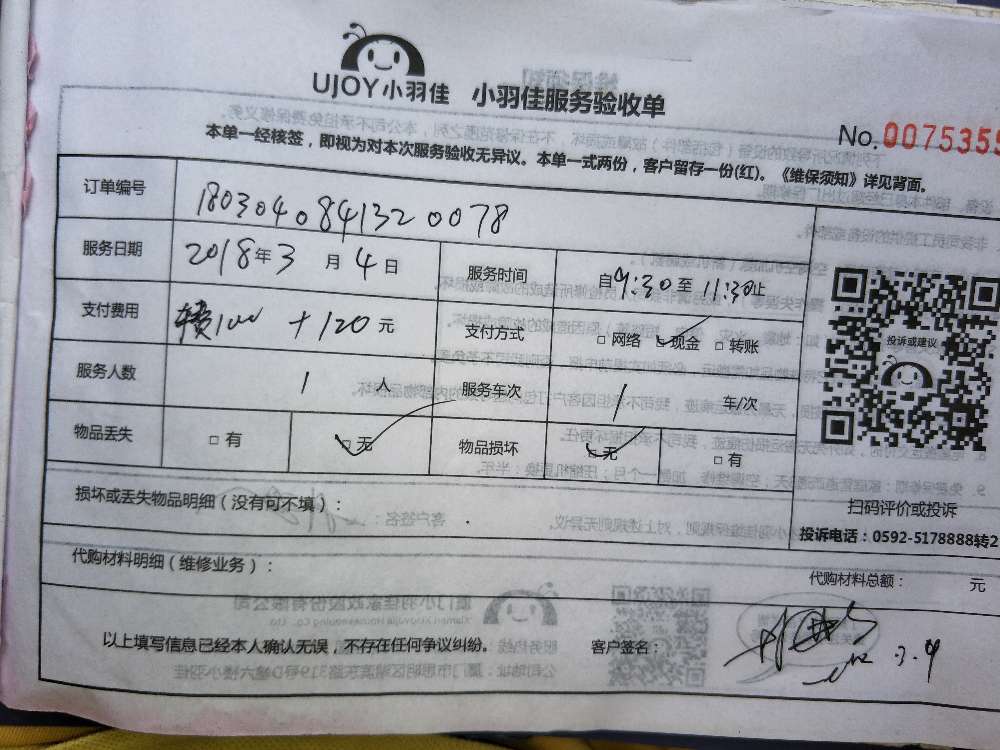 UJOY小羽佳 小羽佳服务验收单
No.0075355
本单一经核签，即视为对本次服务验收无异议。本单一式两份，客户留存一份(红)。《维保须知》详见背面。
订单编号 180304084132 0078
服务日期 2018年3月4日 服务时间 自9:30至11:30止
支付费用 +120元 支付方式 □网络 □现金 □转账
投诉或建议
服务人数 1人 服务车次 1 车/次
物品丢失 □有 □无 物品损坏 □无 □有
损坏或丢失物品明细（没有可不填）：
扫码评价或投诉
投诉电话：0592-5178888转2
代购材料明细（维修业务）：
代购材料总额： 元
以上填写信息已经本人确认无误，不存在任何争议纠纷。 客户签名：